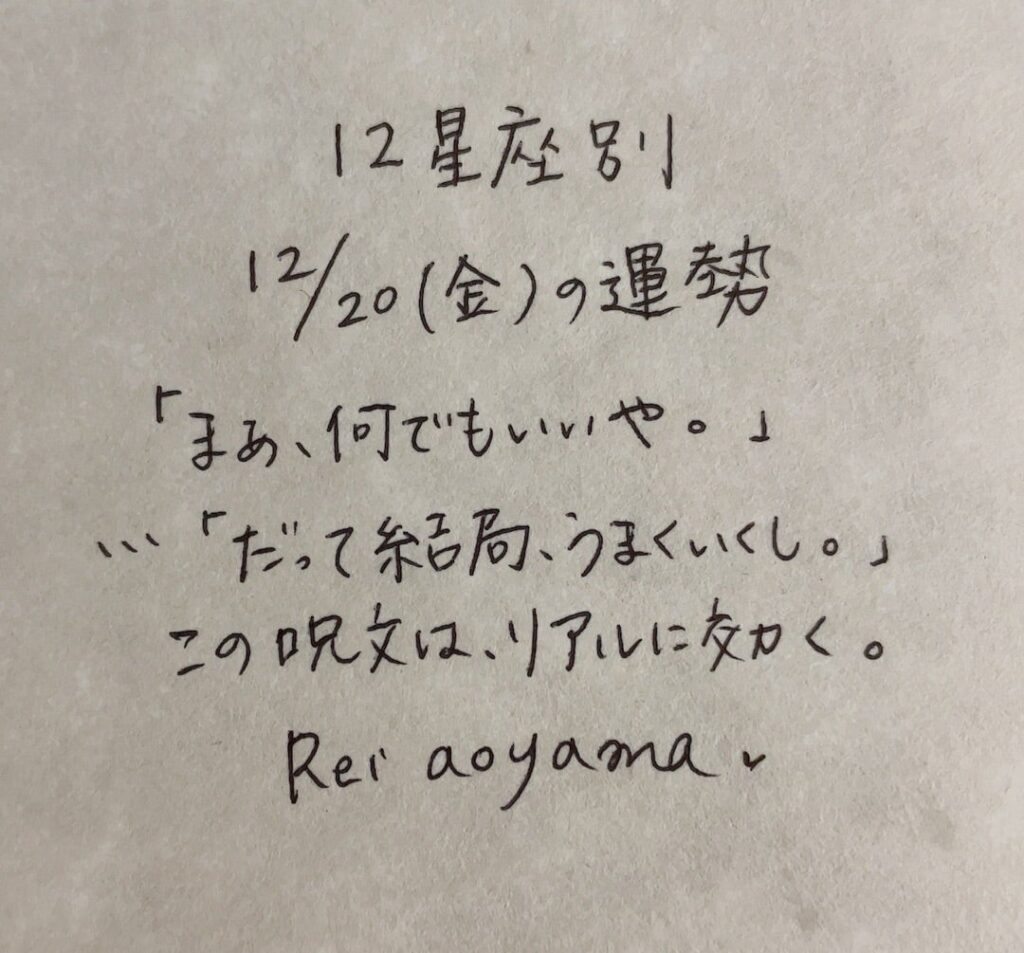 12星座別
12/20(金)の運勢
「まあ、何でもいいや。」
…「だって結局、うまくいくし。」
この呪文は、リアルに効く。
Rei aoyama